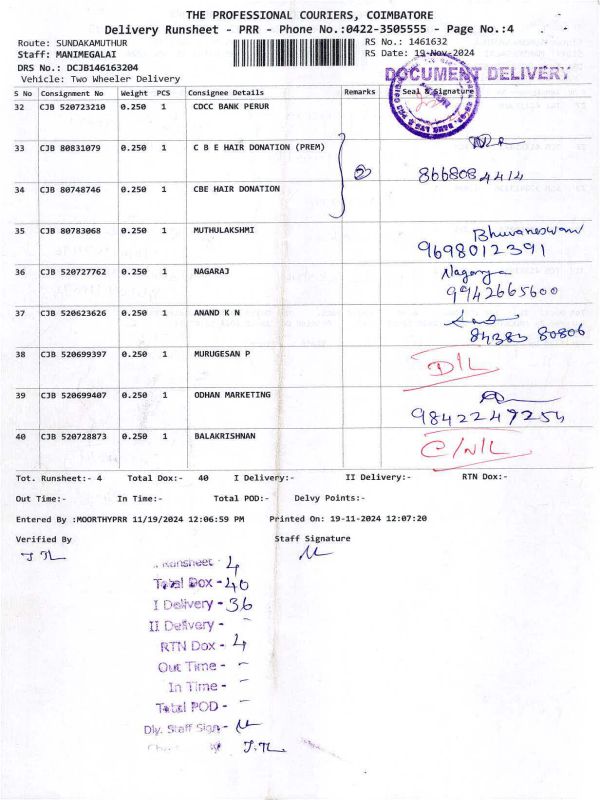 THE PROFESSIONAL COURIERS, COIMBATORE
Delivery Runsheet - PRR - Phone No.:0422-3505555 - Page No.:4
Route: SUNDAKAMUTHUR RS No.: 1461632
Staff: MANIMEGALAI RS Date: 19-Nov-2024
DRS No.: DCJB146163204
DOCUMENT DELIVERY
Vehicle: Two Wheeler Delivery
S No Consignment No Weight PCS Consignee Details Remarks Seal & Signature
32 CJB 520723210 0.250 1 CDCC BANK PERUR
33 CJB 80831079 0.250 1 C B E HAIR DONATION (PREM)
8668084414
34 CJB 80748746 0.250 1 CBE HAIR DONATION
35 CJB 80783068 0.250 1 MUTHULAKSHMI Bhuvaneswari
9698012391
36 CJB 520727762 0.250 1 NAGARAJ Nagaraja
9942665600
37 CJB 520623626 0.250 1 ANAND K N
84383 80806
38 CJB 520699397 0.250 1 MURUGESAN P D/L
39 CJB 520699407 0.250 1 ODHAN MARKETING
9842247254
40 CJB 520728873 0.250 1 BALAKRISHNAN C/N/L
Tot. Runsheet:- 4 Total Dox:- 40 I Delivery:- II Delivery:- RTN Dox:-
Out Time:- In Time:- Total POD:- Delvy Points:-
Entered By :MOORTHYPRR 11/19/2024 12:06:59 PM Printed On: 19-11-2024 12:07:20
Verified By Staff Signature
Runsheet - 4
Total Dox - 40
I Delivery - 36
II Delivery - -
RTN Dox - 4
Out Time - -
In Time - -
Total POD - -
Dly. Staff Sign -